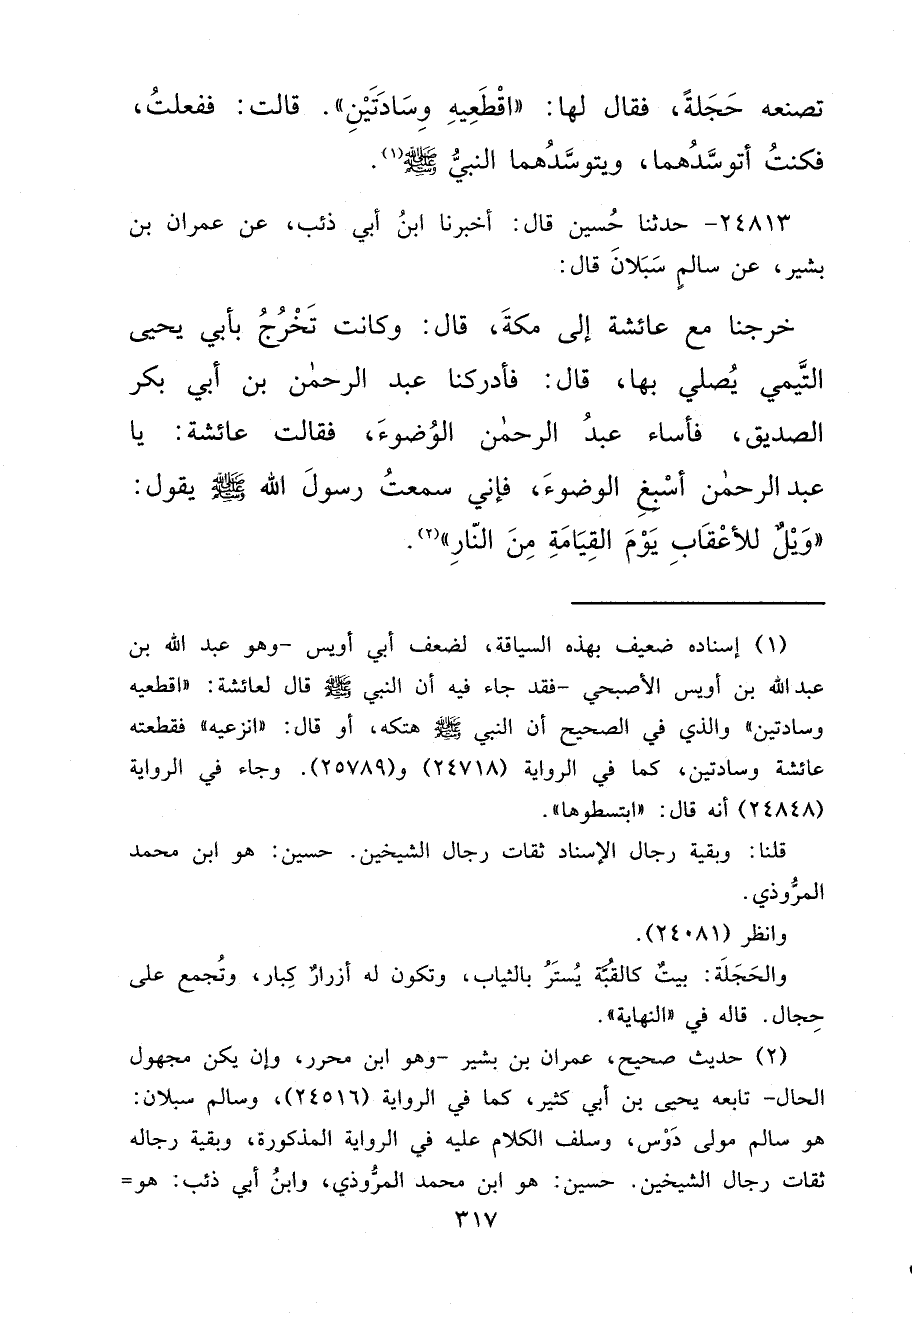 تصنعه حَجَلةً، فقال لها: «اقْطَعِيهِ وِسَادَتَيْنِ». قالت: ففعلتُ،
فكنتُ أتوسَّدُهما، ويتوسَّدُهما النبيُّ ﷺ(١).
٢٤٨١٣- حدثنا حُسين قال: أخبرنا ابنُ أبي ذئب، عن عمران بن
بشير، عن سالمٍ سَبَلانَ قال:
خرجنا مع عائشة إلى مكةَ، قال: وكانت تَخْرُجُ بأبي يحيى
التَّيمي يُصلي بها، قال: فأدركنا عبد الرحمٰن بن أبي بكر
الصديق، فأساء عبدُ الرحمٰن الوُضوءَ، فقالت عائشة: يا
عبد الرحمٰن أسْبِغِ الوضوءَ، فإني سمعتُ رسولَ الله ﷺ يقول:
«وَيْلٌ للأعْقَابِ يَوْمَ القِيَامَةِ مِنَ النّارِ»(٢).
(١) إسناده ضعيف بهذه السياقة، لضعف أبي أويس -وهو عبد الله بن
عبدالله بن أويس الأصبحي -فقد جاء فيه أن النبي ﷺ قال لعائشة: «اقطعيه
وسادتين» والذي في الصحيح أن النبي ﷺ هتكه، أو قال: «انزعيه» فقطعته
عائشة وسادتين، كما في الرواية (٢٤٧١٨) و(٢٥٧٨٩). وجاء في الرواية
(٢٤٨٤٨) أنه قال: «ابتسطوها».
قلنا: وبقية رجال الإسناد ثقات رجال الشيخين. حسين: هو ابن محمد
المرُّوذي.
وانظر (٢٤٠٨١).
والحَجَلَة: بيتٌ كالقُبَّة يُستَرُ بالثياب، وتكون له أزرارٌ كِبار، وتُجمع على
حِجال. قاله في «النهاية».
(٢) حديث صحيح، عمران بن بشير -وهو ابن محرر، وإن يكن مجهول
الحال- تابعه يحيى بن أبي كثير، كما في الرواية (٢٤٥١٦)، وسالم سبلان:
هو سالم مولى دَوْس، وسلف الكلام عليه في الرواية المذكورة، وبقية رجاله
ثقات رجال الشيخين. حسين: هو ابن محمد المرُّوذي، وابنُ أبي ذئب: هو=
٣١٧